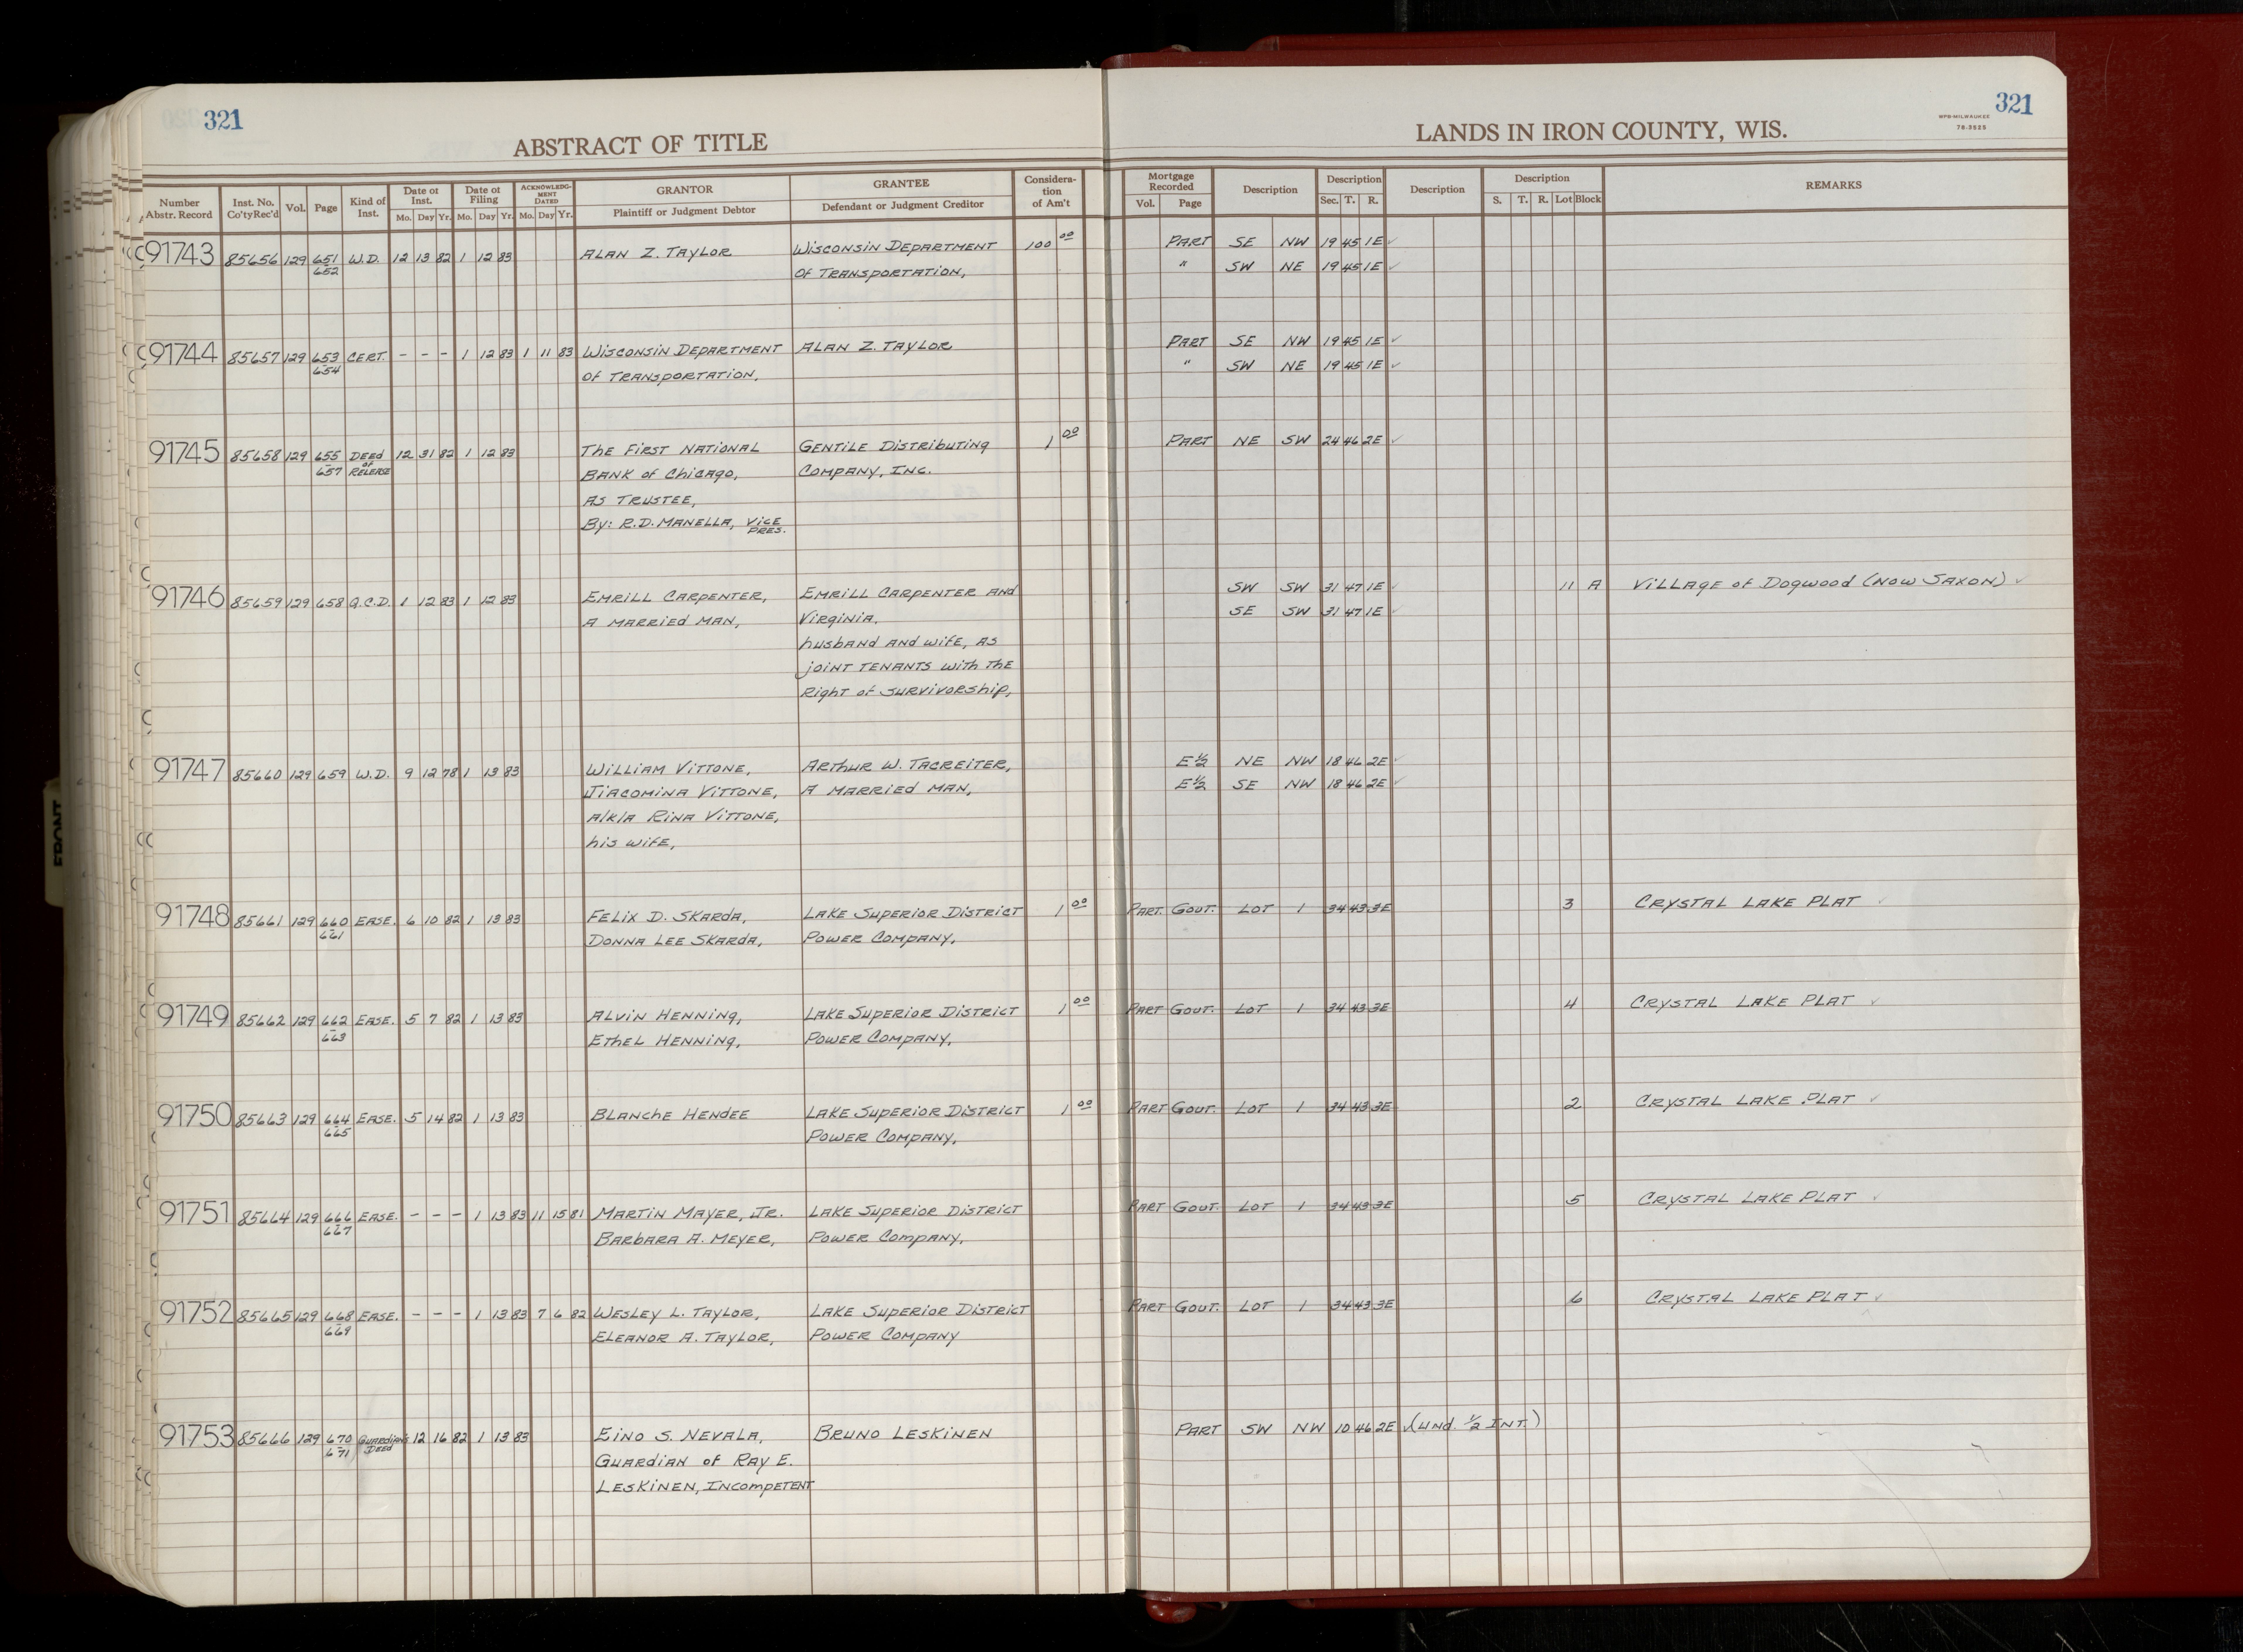 321
321
ABSTRACT OF TITLE
LANDS IN IRON COUNTY, WIS.
WPB-MILWAUKEE
78-3525
Number Abstr. Record | Inst. No. Co'ty Rec'd | Vol. | Page | Kind of Inst. | Date of Inst. Mo. Day Yr. | Date of Filing Mo. Day Yr. | ACKNOWLEDGMENT DATED Mo. Day Yr. | GRANTOR Plaintiff or Judgment Debtor | GRANTEE Defendant or Judgment Creditor | Consideration of Am't | Mortgage Recorded Vol. Page | Description | Description Sec. T. R. | Description | Description S. T. R. Lot Block | REMARKS
91743 85656 129 651 W.D. 12 13 82 1 12 83 ALAN Z. TAYLOR WISCONSIN DEPARTMENT 100 00 PART SE NW 19 45 1E ✓
652 OF TRANSPORTATION, " SW NE 19 45 1E ✓
91744 85657 129 653 CERT. - - - 1 12 83 1 11 83 WISCONSIN DEPARTMENT ALAN Z. TAYLOR PART SE NW 19 45 1E ✓
654 OF TRANSPORTATION, " SW NE 19 45 1E ✓
91745 85658 129 655 DEED 12 31 82 1 12 83 THE FIRST NATIONAL GENTILE DISTRIBUTING 1 00 PART NE SW 24 46 2E ✓
657 OF RELEASE BANK OF CHICAGO, COMPANY, INC.
AS TRUSTEE,
By: R.D. MANELLA, VICE PRES.
91746 85659 129 658 Q.C.D. 1 12 83 1 12 83 EMRILL CARPENTER, EMRILL CARPENTER AND SW SW 31 47 1E ✓ 11 A VILLAGE OF DOGWOOD (NOW SAXON) ✓
A MARRIED MAN, VIRGINIA, SE SW 31 47 1E ✓
husband AND WIFE, AS
JOINT TENANTS WITH THE
RIGHT OF SURVIVORSHIP,
91747 85660 129 659 W.D. 9 12 78 1 13 83 WILLIAM VITTONE, ARTHUR W. TACREITER, E½ NE NW 18 46 2E ✓
JIACOMINA VITTONE, A MARRIED MAN, E½ SE NW 18 46 2E ✓
A/K/A RINA VITTONE,
his WIFE,
91748 85661 129 660 EASE. 6 10 82 1 13 83 FELIX D. SKARDA, LAKE SUPERIOR DISTRICT 1 00 PART. GOVT. LOT 1 34 43 3E 3 CRYSTAL LAKE PLAT ✓
661 DONNA LEE SKARDA, POWER COMPANY,
91749 85662 129 662 EASE. 5 7 82 1 13 83 ALVIN HENNING, LAKE SUPERIOR DISTRICT 1 00 PART GOVT. LOT 1 34 43 3E 4 CRYSTAL LAKE PLAT ✓
663 ETHEL HENNING, POWER COMPANY,
91750 85663 129 664 EASE. 5 14 82 1 13 83 BLANCHE HENDEE LAKE SUPERIOR DISTRICT 1 00 PART GOVT. LOT 1 34 43 3E 2 CRYSTAL LAKE PLAT ✓
665 POWER COMPANY,
91751 85664 129 666 EASE. - - - 1 13 83 11 15 81 MARTIN MAYER, JR. LAKE SUPERIOR DISTRICT PART GOVT. LOT 1 34 43 3E 5 CRYSTAL LAKE PLAT ✓
667 BARBARA A. MEYER, POWER COMPANY,
91752 85665 129 668 EASE. - - - 1 13 83 7 6 82 WESLEY L. TAYLOR, LAKE SUPERIOR DISTRICT PART GOVT. LOT 1 34 43 3E 6 CRYSTAL LAKE PLAT ✓
669 ELEANOR A. TAYLOR, POWER COMPANY
91753 85666 129 670 GUARDIAN'S 12 16 82 1 13 83 EINO S. NEVALA, BRUNO LESKINEN PART SW NW 10 46 2E ✓ (UND. ½ INT)
671 DEED GUARDIAN OF RAY E.
LESKINEN, INCOMPETENT
FRONT